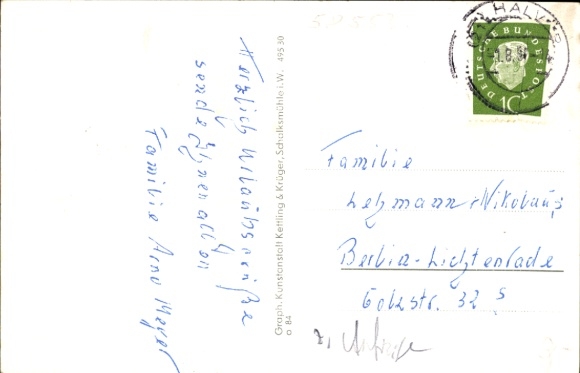 Herzlich Urlaubsgrüße
sende Ihnen allen
Familie Arno Meyer
Graph. Kunstanstalt Kettling & Krüger, Schalksmühle i. W. 49530
a 84
HALVER
DEUTSCHE BUNDESPOST
10
Familie
Lehmann-Nikolaus
Berlin-Lichtenrade
Golzstr. 32